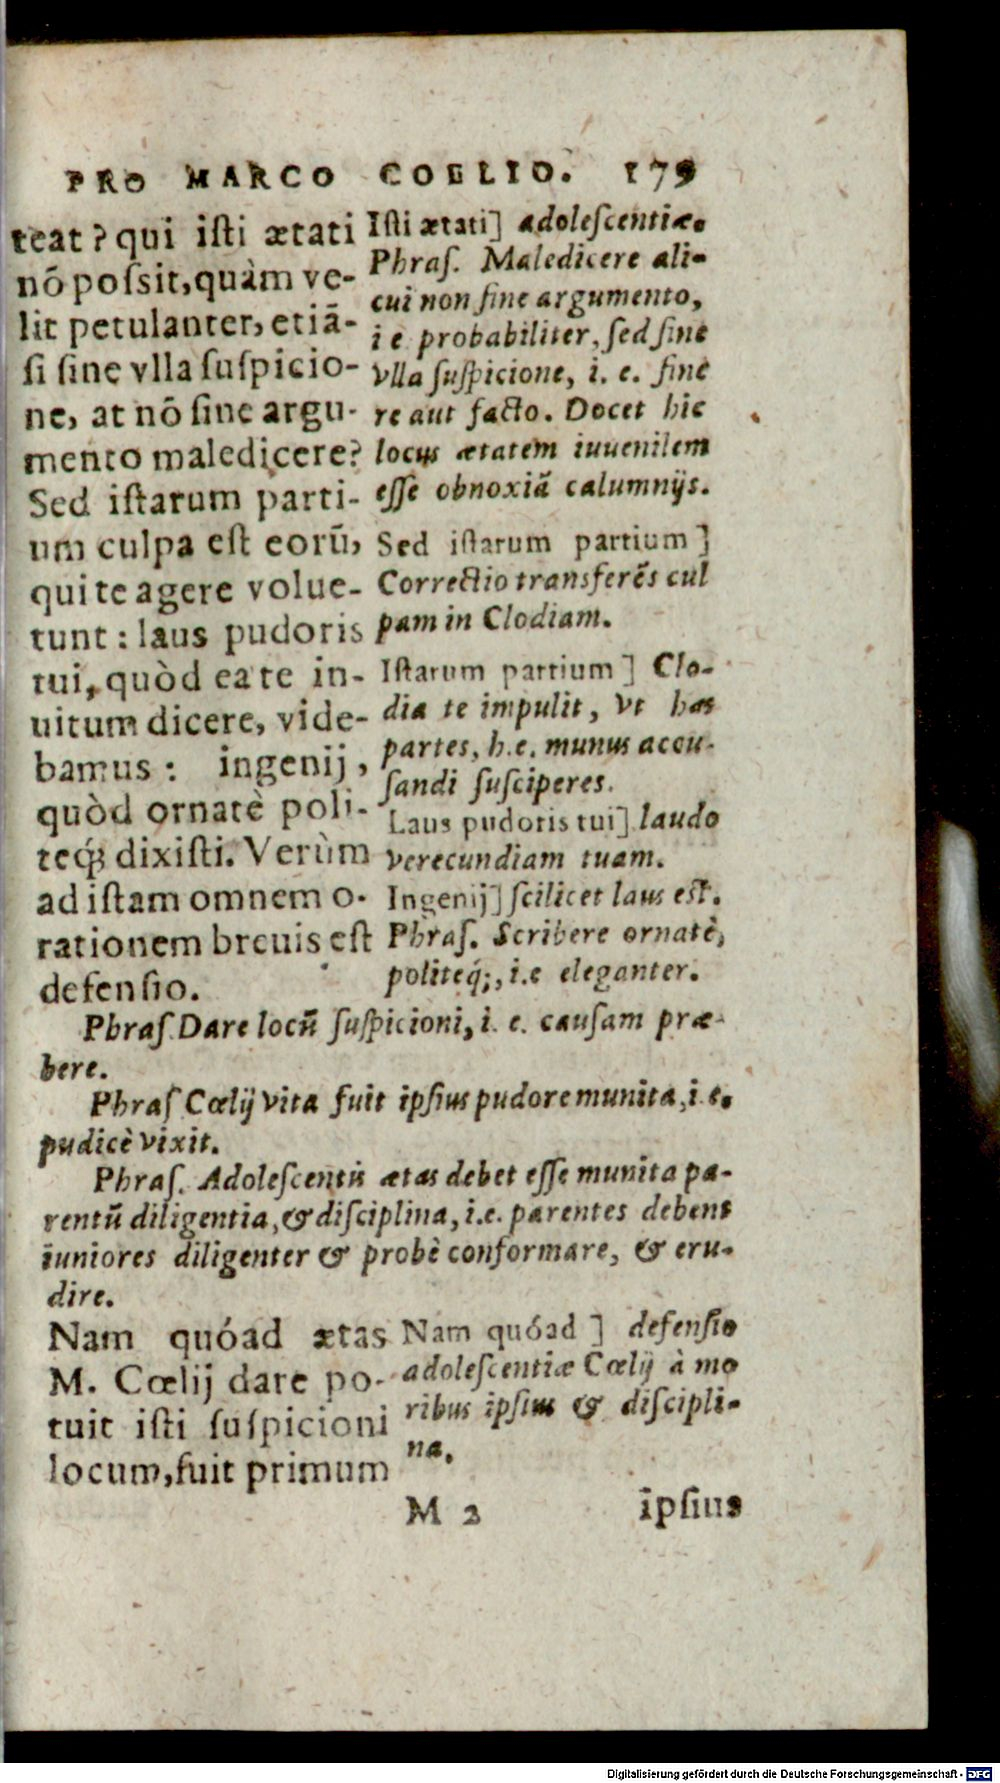 PRO MARCO COELIO. 179
teat? qui isti ætati
nō poſsit, quàm ve-
lit petulanter, etiā-
ſi ſine vlla ſuſpicio-
ne, at nō ſine argu-
mento maledicere?
Sed iſtarum parti-
um culpa eſt eorū,
qui te agere volue-
runt: laus pudoris
tui, quòd ea te in-
uitum dicere, vide-
bamus: ingenij,
quòd ornatè poli-
teq́; dixiſti. Verùm
ad iſtam omnem o-
rationem breuis eſt
defenſio.
Iſti ætati] adoleſcentiæ.
Phraſ. Maledicere ali-
cui non ſine argumento,
i e probabiliter, ſed ſine
vlla ſuſpicione, i. e. ſine
re aut facto. Docet hic
locus ætatem iuuenilem
eſſe obnoxiā calumnijs.
Sed iſtarum partium]
Correctio transferēs cul
pam in Clodiam.
Iſtarum partium] Clo-
dia te impulit, vt has
partes, h.e. munus accu-
ſandi ſuſciperes.
Laus pudoris tui] laudo
verecundiam tuam.
Ingenij] ſcilicet laus eſt.
Phraſ. Scribere ornatè,
politeq́;, i.e eleganter.
Phraſ. Dare locū ſuſpicioni, i. e. cauſam præ-
bere.
Phraſ. Cœlij vita fuit ipſius pudore munita, i. e.
pudicè vixit.
Phraſ. Adoleſcentis ætas debet eſſe munita pa-
rentū diligentia, & diſciplina, i.e. parentes debent
iuniores diligenter & probè conformare, & eru-
dire.
Nam quóad ætas
M. Cœlij dare po-
tuit iſti ſuſpicioni
locum, fuit primum
Nam quóad] defenſio
adoleſcentiæ Cœlij à mo
ribus ipſius & diſcipli-
na.
M 2 ipſius
Digitalisierung gefördert durch die Deutsche Forschungsgemeinschaft - DFG